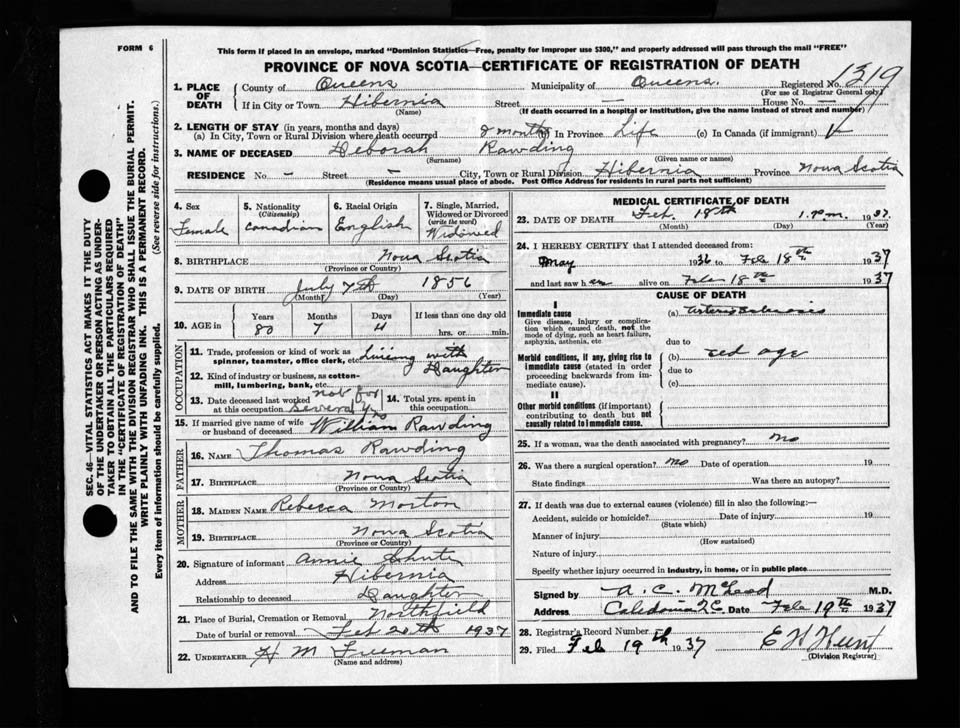 FORM 6
This form if placed in an envelope, marked "Dominion Statistics—Free, penalty for improper use $300," and properly addressed will pass through the mail "FREE"
PROVINCE OF NOVA SCOTIA—CERTIFICATE OF REGISTRATION OF DEATH
SEC. 46—VITAL STATISTICS ACT MAKES IT THE DUTY
OF THE UNDERTAKER OR PERSON ACTING AS UNDER-
TAKER TO OBTAIN ALL THE PARTICULARS REQUIRED
IN THE "CERTIFICATE OF REGISTRATION OF DEATH"
AND TO FILE THE SAME WITH THE DIVISION REGISTRAR WHO SHALL ISSUE THE BURIAL PERMIT.
WRITE PLAINLY WITH UNFADING INK. THIS IS A PERMANENT RECORD.
Every item of information should be carefully supplied. (See reverse side for instructions).
1. PLACE OF DEATH County of Queens Municipality of Queens. Registered No. 1319
(For use of Registrar General only)
If in City or Town Hibernia Street — House No. —
(Name) (If death occurred in a hospital or institution, give the name instead of street and number)
2. LENGTH OF STAY (in years, months and days)
(a) In City, Town or Rural Division where death occurred 8 months In Province Life (c) In Canada (if immigrant)
3. NAME OF DECEASED Deborah Rawding
(Surname) (Given name or names)
RESIDENCE No – Street – City, Town or Rural Division Hibernia Province Nova Scotia
(Residence means usual place of abode. Post Office Address for residents in rural parts not sufficient)
4. Sex
Female
5. Nationality
(Citizenship)
Canadian
6. Racial Origin
English
7. Single, Married,
Widowed or Divorced
(write the word)
Widowed
8. BIRTHPLACE Nova Scotia
(Province or Country)
9. DATE OF BIRTH July 7th 1856
(Month) (Day) (Year)
10. AGE in
Years Months Days If less than one day old
80 7 11 hrs. or min.
OCCUPATION
11. Trade, profession or kind of work as
spinner, teamster, office clerk, etc. living with
Daughter
12. Kind of industry or business, as cotton-
mill, lumbering, bank, etc.
13. Date deceased last worked
at this occupation not for
several yrs
14. Total yrs. spent in
this occupation
15. If married give name of wife
or husband of deceased William Rawding
FATHER
16. NAME Thomas Rawding
17. BIRTHPLACE Nova Scotia
(Province or Country)
MOTHER
18. MAIDEN NAME Rebecca Morton
19. BIRTHPLACE Nova Scotia
(Province or Country)
20. Signature of informant Annie Shute
Address Hibernia
Relationship to deceased Daughter
21. Place of Burial, Cremation or Removal Northfield
Date of burial or removal Feb 20th 1937
22. UNDERTAKER H M Freeman
(Name and address)
MEDICAL CERTIFICATE OF DEATH
23. DATE OF DEATH Feb. 18th 1. P.m. 1937.
(Month) (Day) (Year)
24. I HEREBY CERTIFY that I attended deceased from:
May 1936 to Feb 18th 1937
and last saw her alive on Feb 18th 1937
CAUSE OF DEATH
I
Immediate cause
Give disease, injury or complica-
tion which caused death, not the
mode of dying, such as heart failure,
asphyxia, asthenia, etc
(a) Arteriosclerosis
due to
Morbid conditions, if any, giving rise to
immediate cause (stated in order
proceeding backwards from im-
mediate cause).
(b) old age
due to
(c)
II
Other morbid conditions (if important)
contributing to death but not
causally related to immediate cause.
25. If a woman, was the death associated with pregnancy? no
26. Was there a surgical operation? no Date of operation 19
State findings Was there an autopsy?
27. If death was due to external causes (violence) fill in also the following:—
Accident, suicide or homicide? Date of injury 19
(State which)
Manner of injury
(How sustained)
Nature of injury
Specify whether injury occurred in industry, in home, or in public place
Signed by A. C. McLeod M.D.
Address Caledonia Q.C. Date Feb 19th 1937
28. Registrar's Record Number
29. Filed Feb 19th 1937 E H Hunt
(Division Registrar)